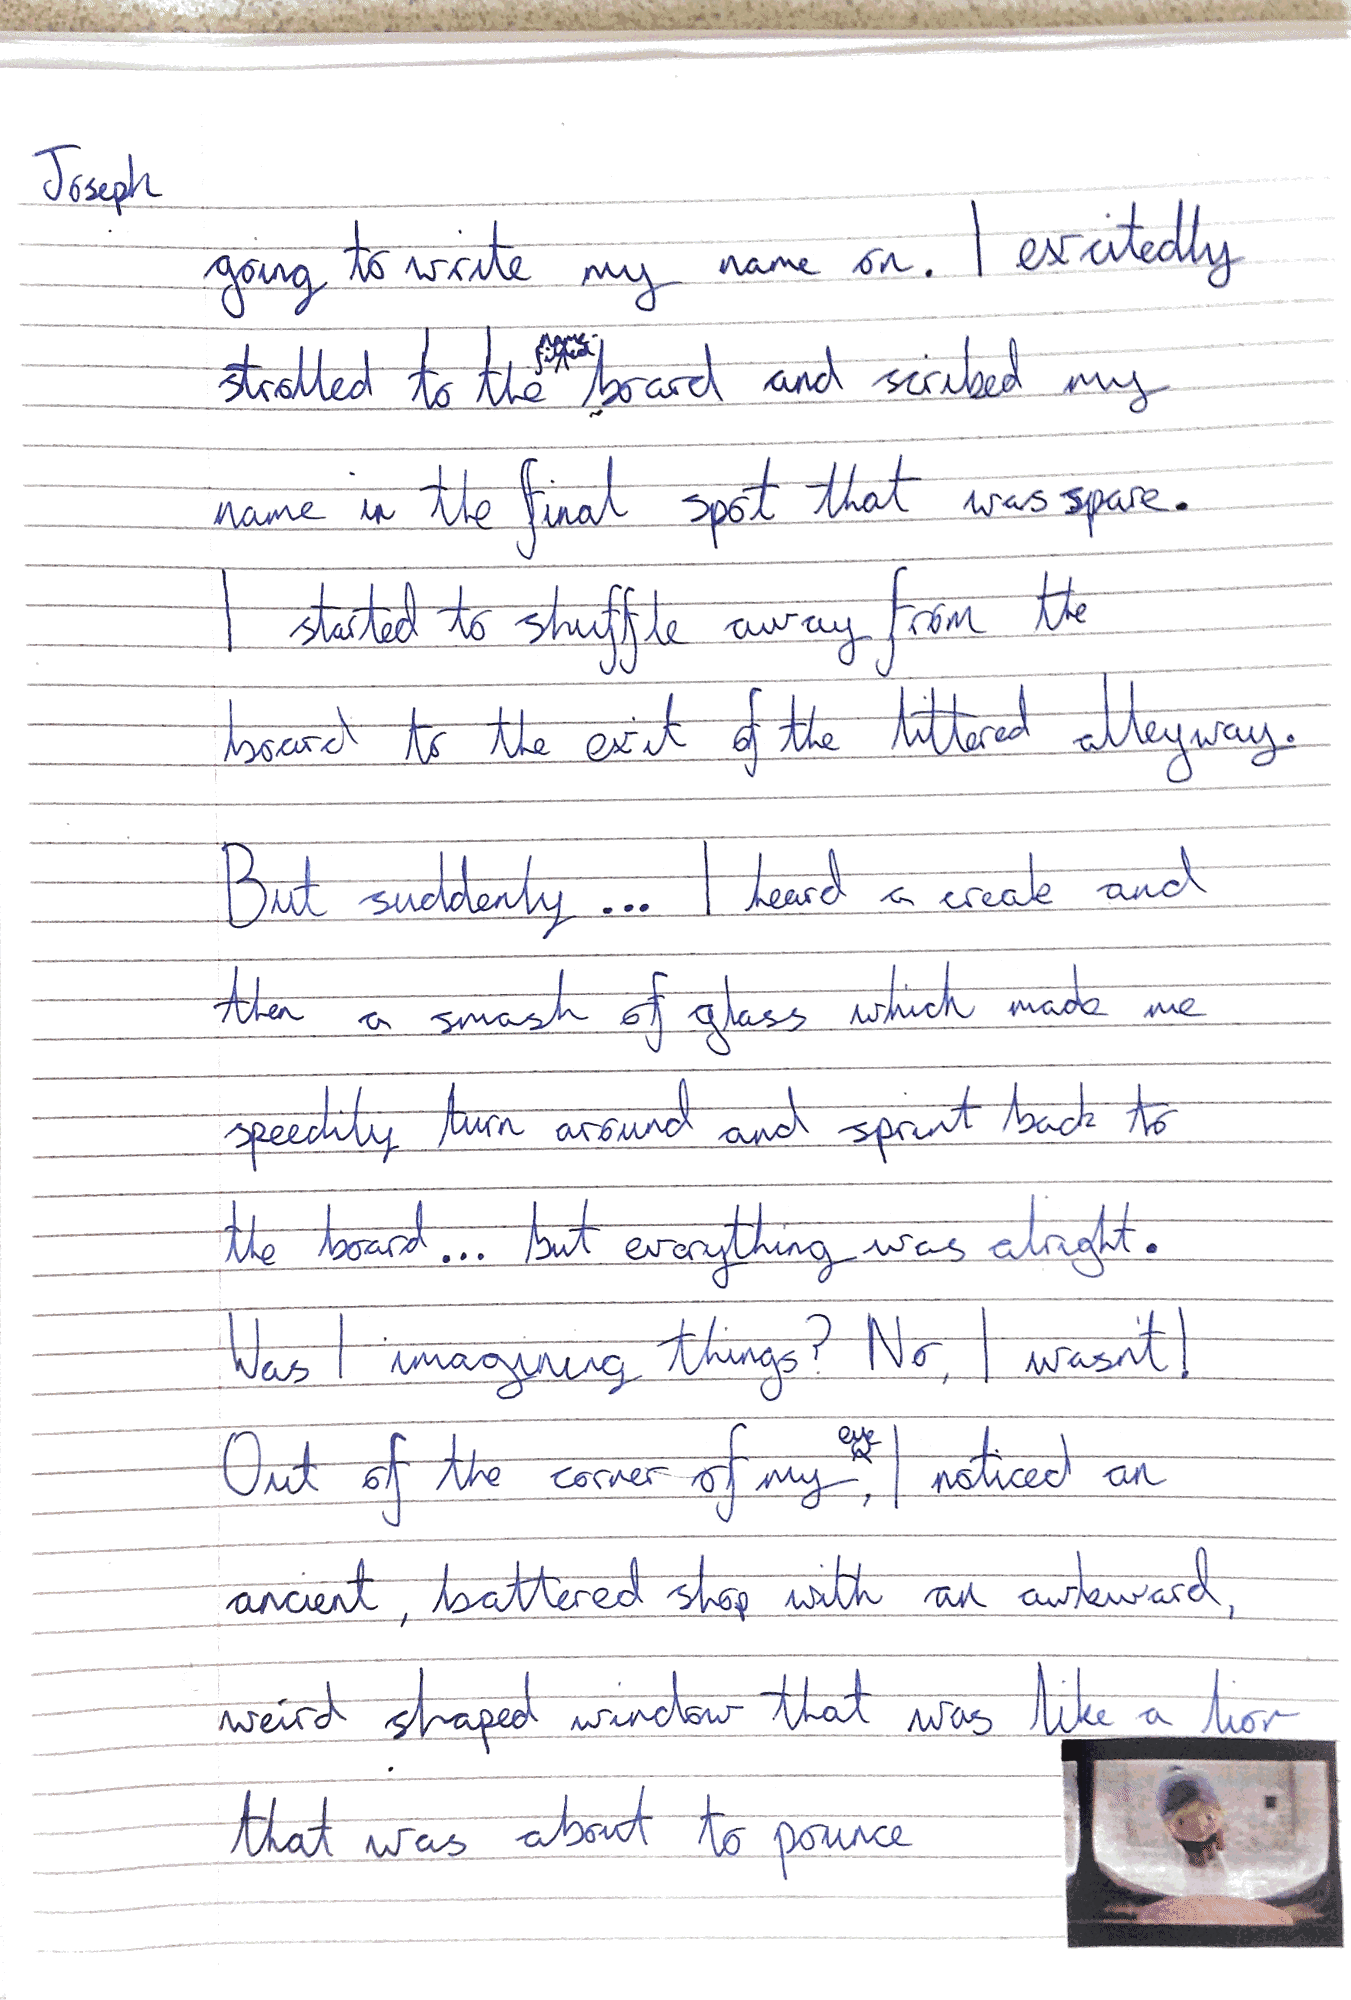 Joseph
going to write my name on. I excitedly
name-
filled
strolled to the board and scribed my
name in the final spot that was spare.
I started to shuffle away from the
board to the exit of the littered alleyway.
But suddenly... I heard a creak and
then a smash of glass which made me
speedily turn around and sprint back to
the board... but everything was alright.
Was I imagining things? No, I wasn't!
eye
Out of the corner of my, I noticed an
ancient, battered shop with an awkward,
weird shaped window that was like a lion
that was about to pounce